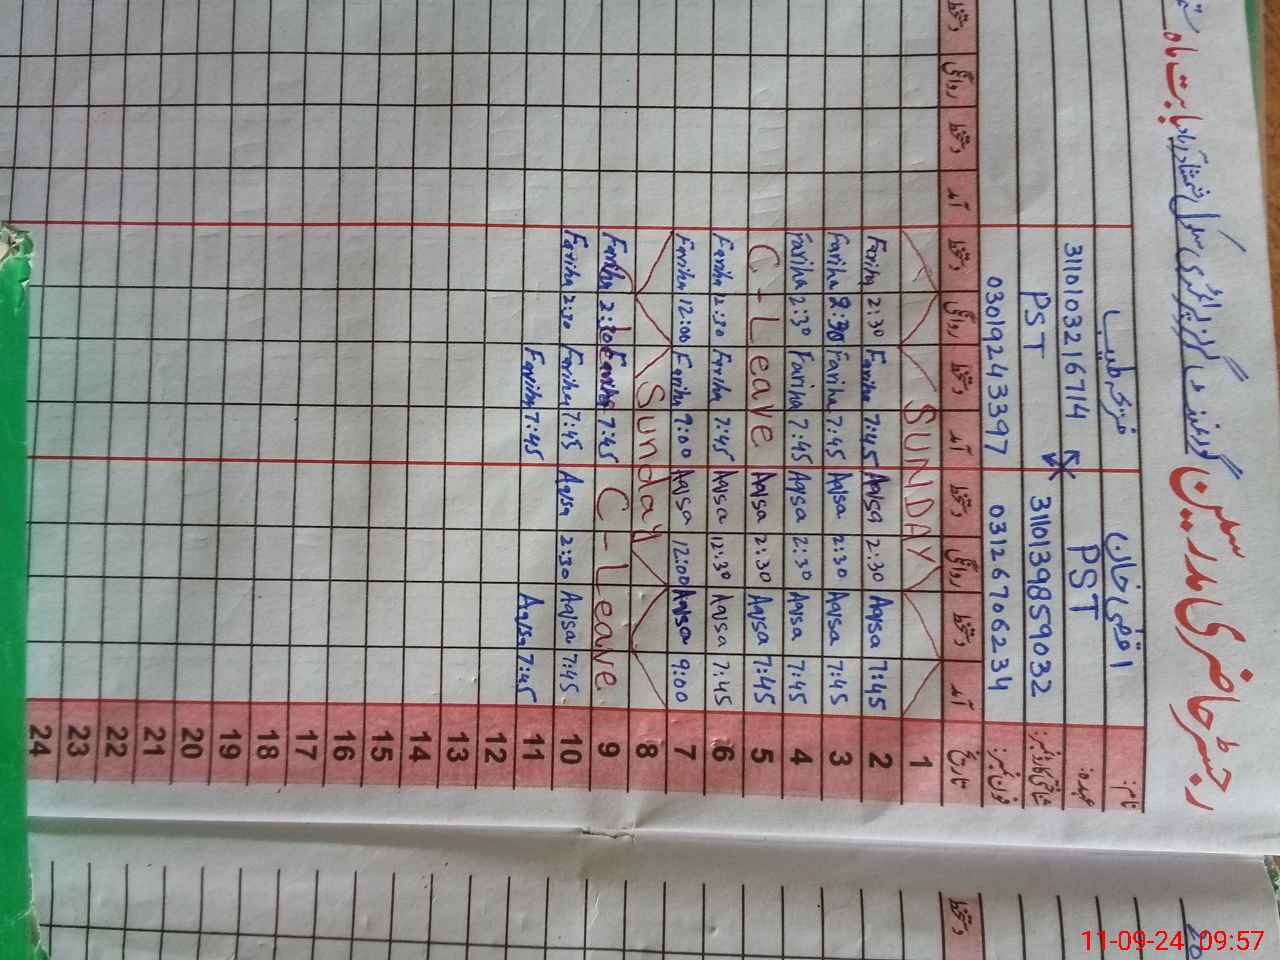 رجسٹر حاضری مدرسین گورنمنٹ گرلز پرائمری سکول بابت ماہ
نام: اقصیٰ خان فریحہ طیب
عہدہ: PST 3110103216714
شناختی کارڈ نمبر: 3110139859032 PST
فون نمبر: 03126706234 03019243397
تاریخ آمد دستخط روانگی دستخط آمد دستخط روانگی دستخط آمد دستخط روانگی دستخط
SUNDAY 1
Fariha 2:30 Fariha 7:45 Aqsa 2:30 Aqsa 7:45 2
Fariha 2:30 Fariha 7:45 Aqsa 2:30 Aqsa 7:45 3
Fariha 2:30 Fariha 7:45 Aqsa 2:30 Aqsa 7:45 4
C-Leave Aqsa 2:30 Aqsa 7:45 5
Fariha 2:30 Fariha 7:45 Aqsa 12:30 Aqsa 7:45 6
Fariha 12:00 Fariha 9:00 Aqsa 12:00 Aqsa 9:00 7
Sunday 8
Fariha 2:30 Fariha 7:45 C-Leave 9
Fariha 2:30 Fariha 7:45 Aqsa 2:30 Aqsa 7:45 10
Fariha 7:45 Aqsa 7:45 11
12
13
14
15
16
17
18
19
20
21
22
23
24
دستخط
11-09-24 09:57